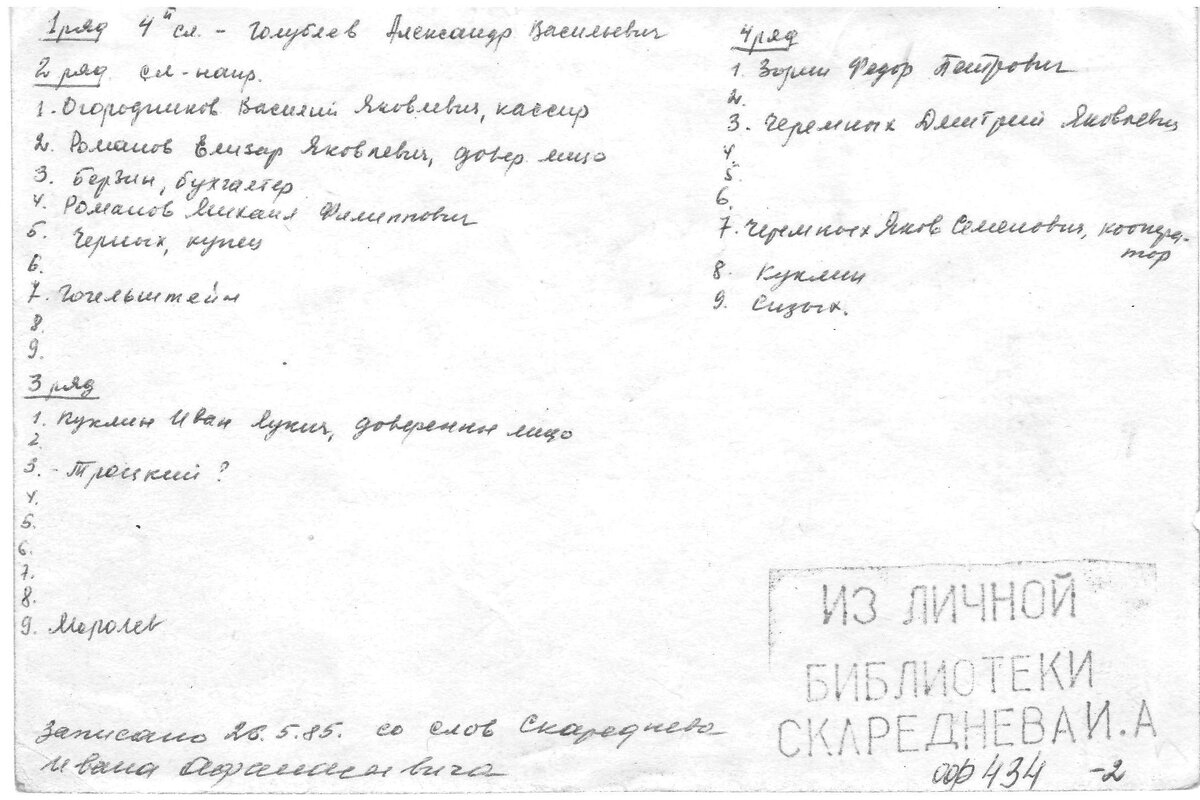 1 ряд 4й сл. - Голублев Александр Васильевич
2 ряд сл-напр.
1. Огородников Василий Яковлевич, кассир
2. Романов Елизар Яковлевич, довер. лицо
3. Берзин, бухгалтер
4. Романов Михаил Филиппович
5. Черных, купец
6.
7. Гогельштейн
8.
9.
3 ряд
1. Куклин Иван Лукич, доверенное лицо
2.
3. - Троцкий ?
4.
5.
6.
7.
8.
9. Моролев
4 ряд
1. Зорин Федор Петрович
2.
3. Черемных Дмитрий Яковлевич
4.
5.
6.
7. Черемных Яков Семенович, коопера-
тор
8. Куклин
9. Сизых.
Записано 26.5.85. со слов Скареднева
Ивана Афанасьевича
ИЗ ЛИЧНОЙ
БИБЛИОТЕКИ
СКАРЕДНЕВА И.А
оф 434 -2